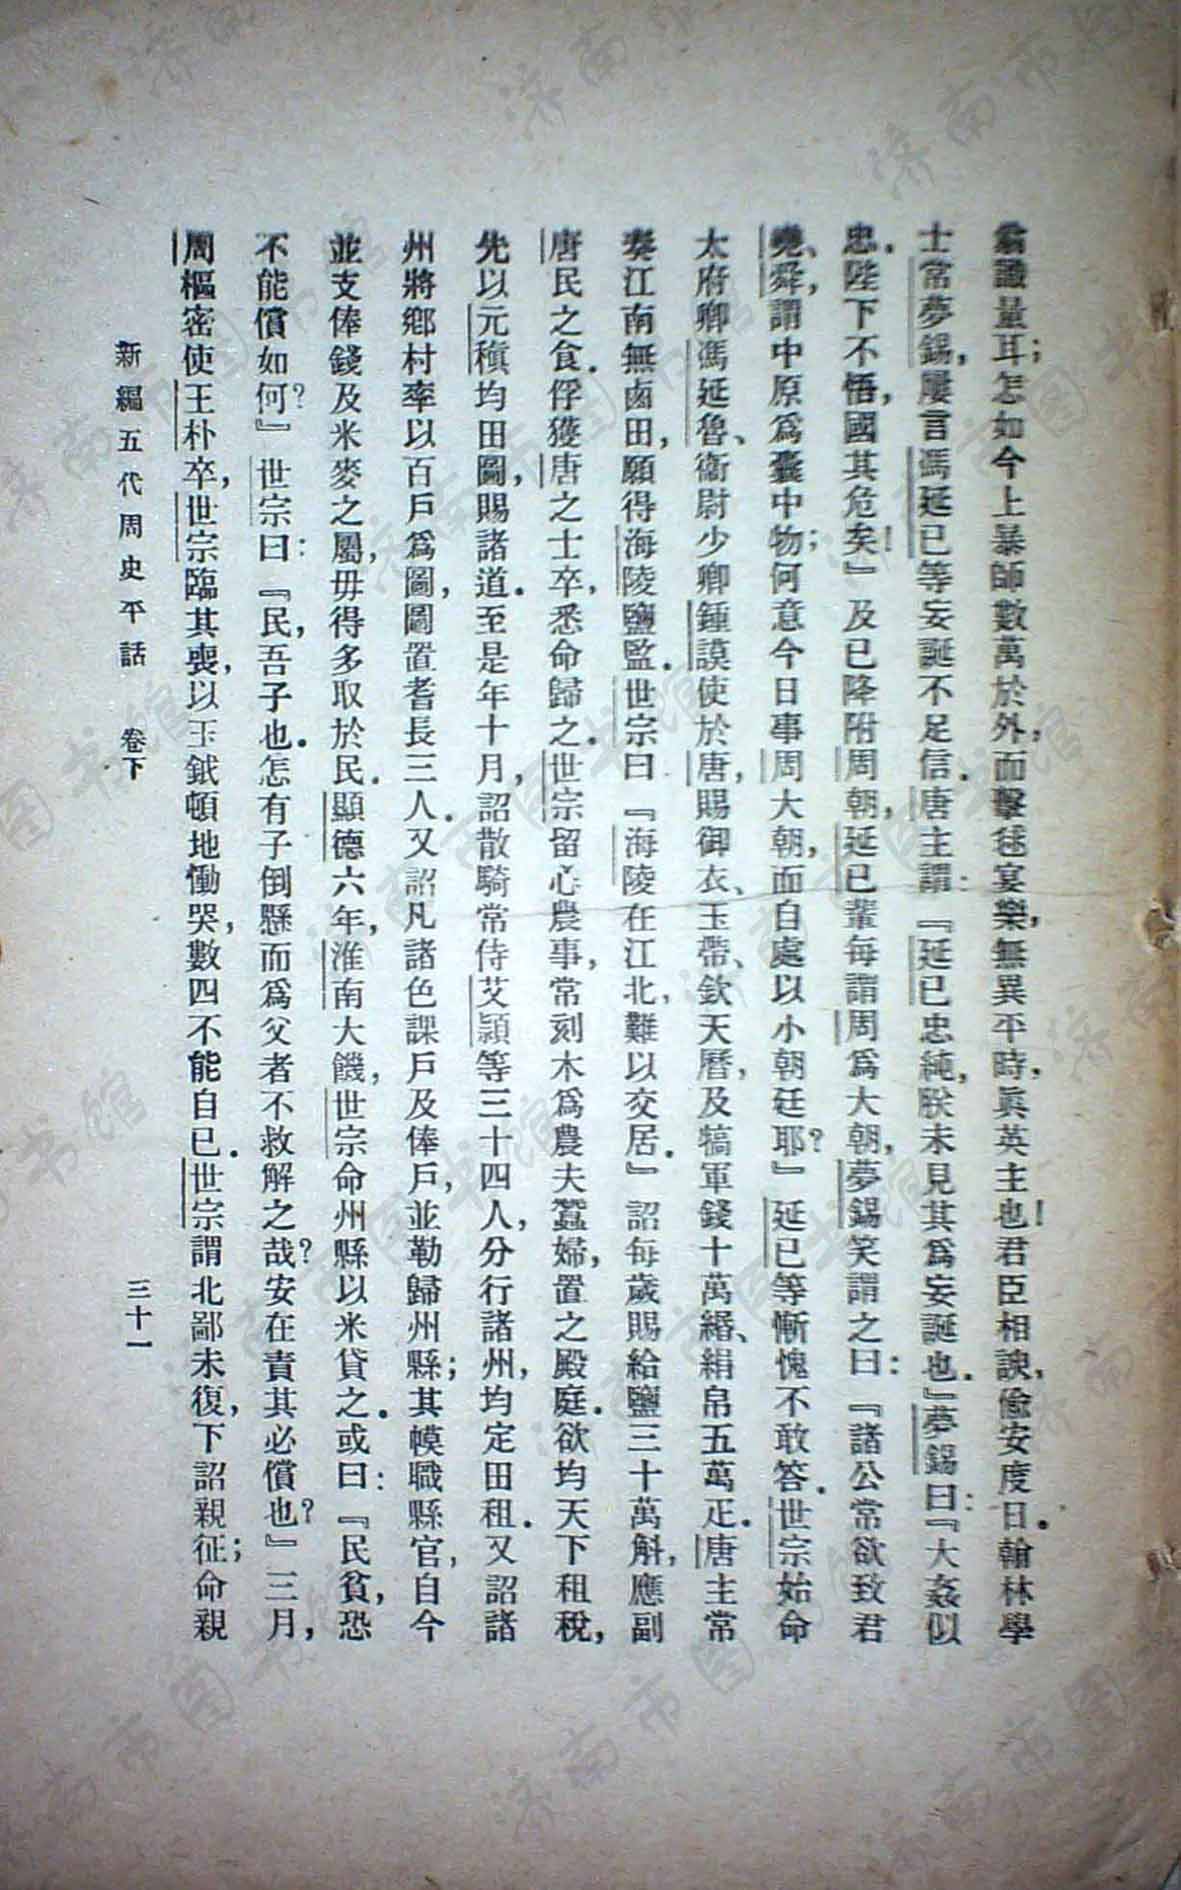 翁識量耳；怎如今上暴師數萬於外，而擊毬宴樂，無異平時，眞英主也！君臣相諛，偸安度日。翰林學
士常夢錫，屢言馮延已等妄誕不足信。唐主謂：『延已忠純，朕未見其爲妄誕也。』夢錫曰：『大姦似
忠。陛下不悟，國其危矣！』及已降附周朝，延已輩每謂周爲大朝，夢錫笑謂之曰：『諸公常欲致君
堯、舜，謂中原爲囊中物；何意今日事周大朝，而自處以小朝廷耶？』延已等慚愧不敢答。世宗始命
太府卿馮延魯、衞尉少卿鍾謨使於唐，賜御衣、玉帶、欽天曆，及犒軍錢十萬緡、絹帛五萬疋。唐主常
奏江南無鹵田，願得海陵鹽監。世宗曰『海陵在江北，難以交居。』詔每歲賜給鹽三十萬斛，應副
唐民之食。俘獲唐之士卒，悉命歸之。世宗留心農事，常刻木爲農夫蠶婦，置之殿庭。欲均天下租稅，
先以元稹均田圖，賜諸道。至是年十月，詔散騎常侍艾潁等三十四人，分行諸州，均定田租。又詔諸
州將鄉村率以百戶爲圖，圖置耆長三人。又詔凡諸色課戶及俸戶，並勒歸州縣；其幙職縣官，自今
並支俸錢及米麥之屬，毋得多取於民。顯德六年，淮南大饑，世宗命州縣以米貸之。或曰：『民貧，恐
不能償如何？』世宗曰：『民，吾子也。怎有子倒懸而爲父者不救解之哉？安在責其必償也？』三月，
周樞密使王朴卒，世宗臨其喪，以玉鉞頓地慟哭，數四不能自已。世宗謂北鄙未復，下詔親征；命親
新編五代周史平話　卷下　三十一
济南市图书馆